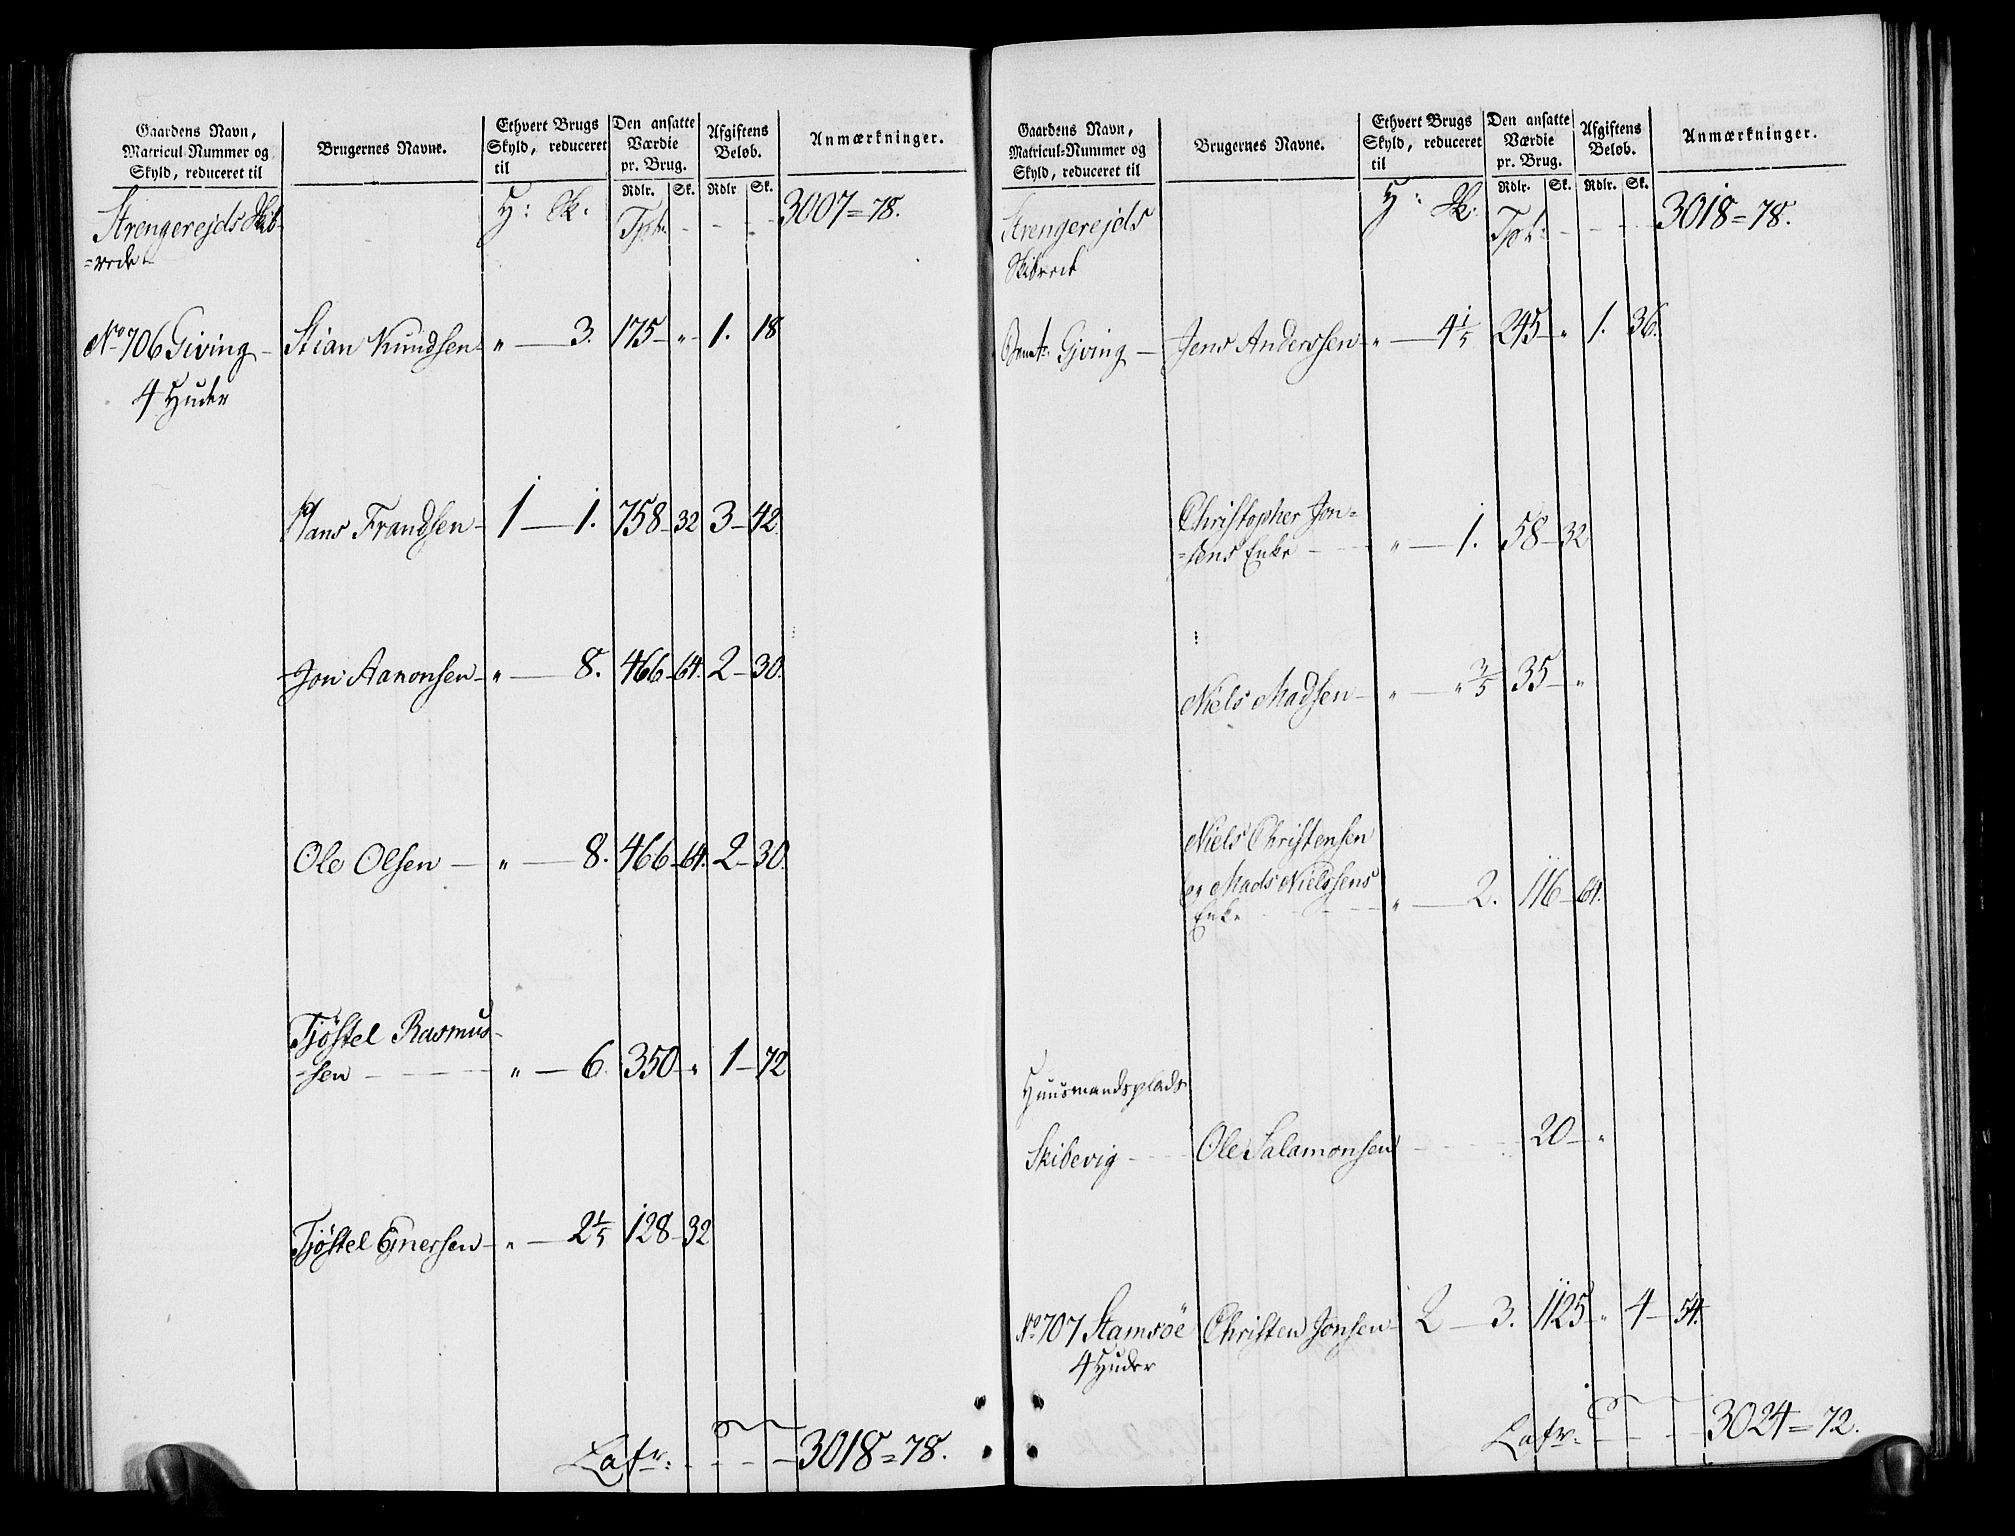 Gaardens Navn,
Matricul-Nummer og
Skyld, reduceret til
Brugernes Navne.
Ethvert Brugs
Skyld, reduceret
til
Den ansatte
Værdie
pr. Brug.
Rdlr. Sk.
Afgiftens
Beløb.
Rdlr Sk.
Anmærkninger.
Strengerejds Skib-
=rede
H: Sk:
Tpt: - - - 3007=78.
No 706 Giving - Stian Knudsen - " - 3. 175 - " - 1. 18
4 Huder
Hans Frandsen - 1 - 1. 758 - 32 3 - 42.
Jon Aanonsen - " - 8. 466 - 64. 2 - 30.
Ole Olsen - " - 8. 466 - 64. 2 - 30.
Tjøstel Rasmus-
-sen - - - - " - 6. 350 - " 1 - 72
Tjøstel Ejnersen - " - 2 1/5 128 - 32
Lat: - - - 3018=78.
Gaardens Navn,
Matricul-Nummer og
Skyld, reduceret til
Brugernes Navne.
Ethvert Brugs
Skyld, reduceret
til
Den ansatte
Værdie
pr. Brug.
Rdlr. Sk.
Afgiftens
Beløb.
Rdlr. Sk.
Anmærkninger.
Strengerejds
Skibred
H: Sk:
Tpt: - - - 3018=78.
Giving - Jens Anderssen - " - 4 1/5 245 - " 1. 36.
Christopher Jon=
=sens Enke - - - " - 1. 58 - 32
Niels Madsen - " - " 3/5 35 - "
Niels Christensen
og Mads Nielssens
Enke - - - " - 2. 116 - 64.
Huusmandsplads
Skibevig - - - Ole Salamonsen - - - 20 - "
No 707 Stamsöe Christen Jonsen - 2 - 3. 1125 - " 4 - 54.
4 Huder
Lat: - - - 3024=72.